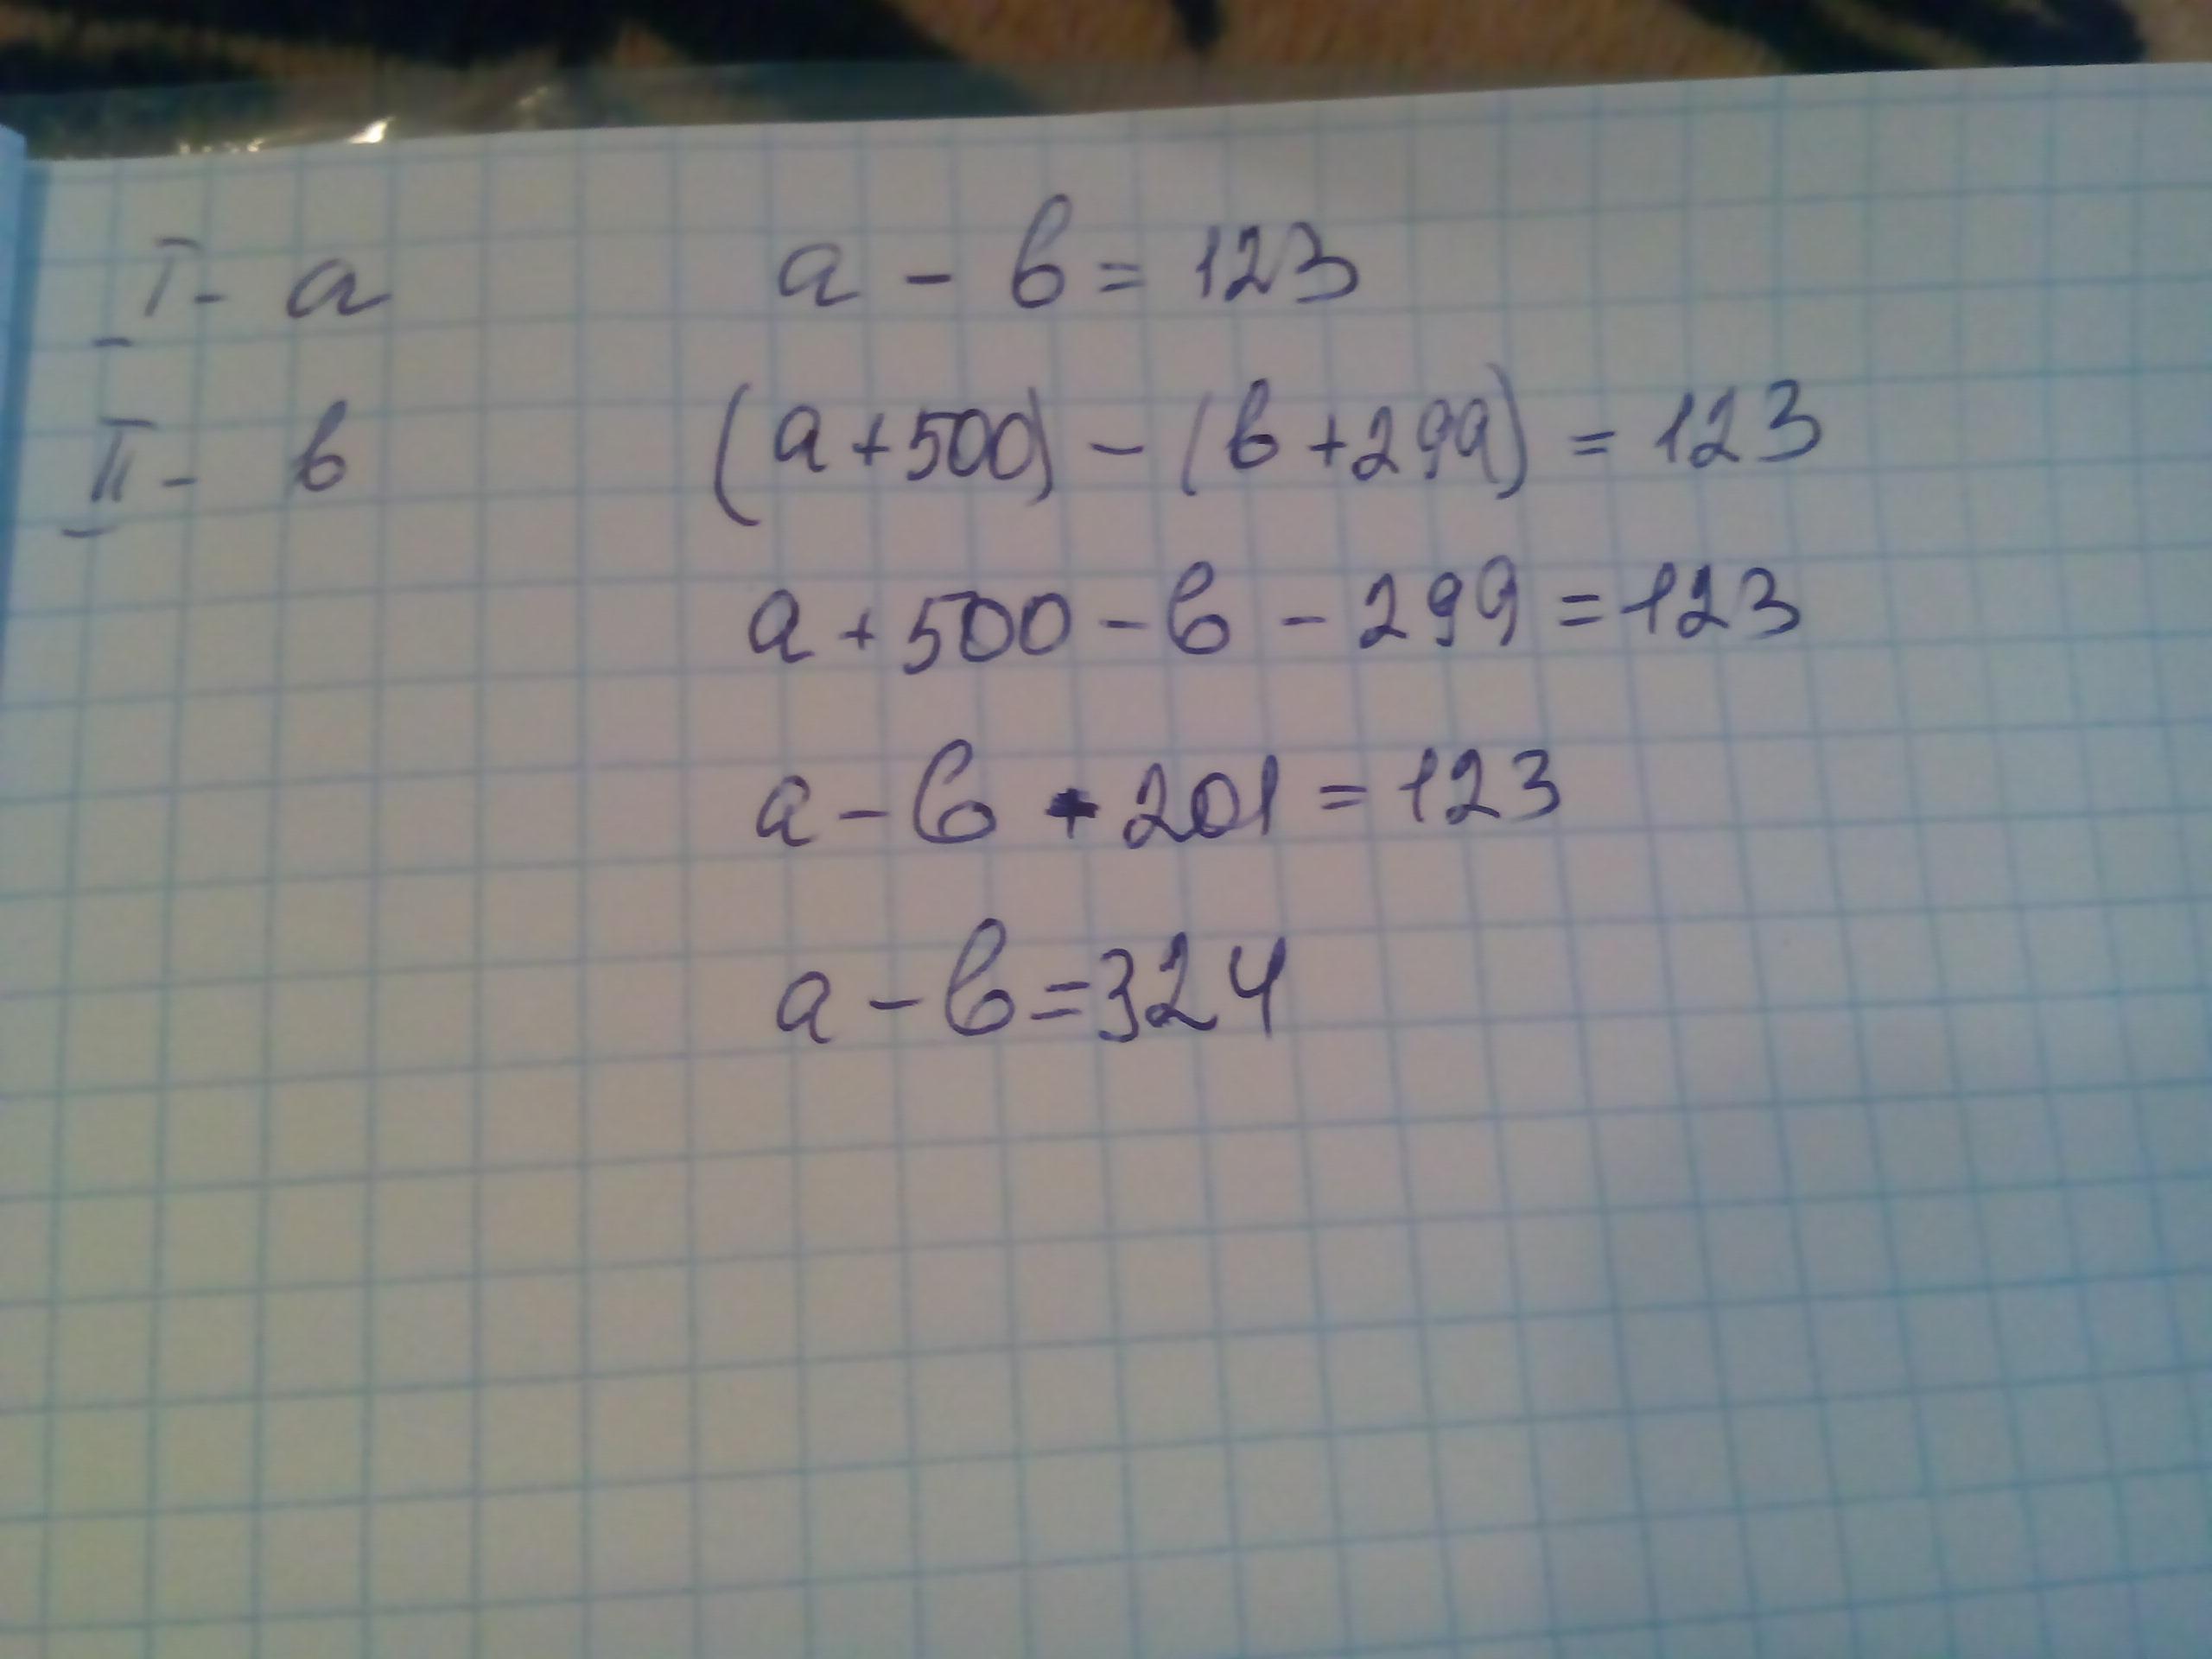 I - a a - в = 123
II - в (a + 500) - (в + 299) = 123
a + 500 - в - 299 = 123
a - в + 201 = 123
a - в = 324